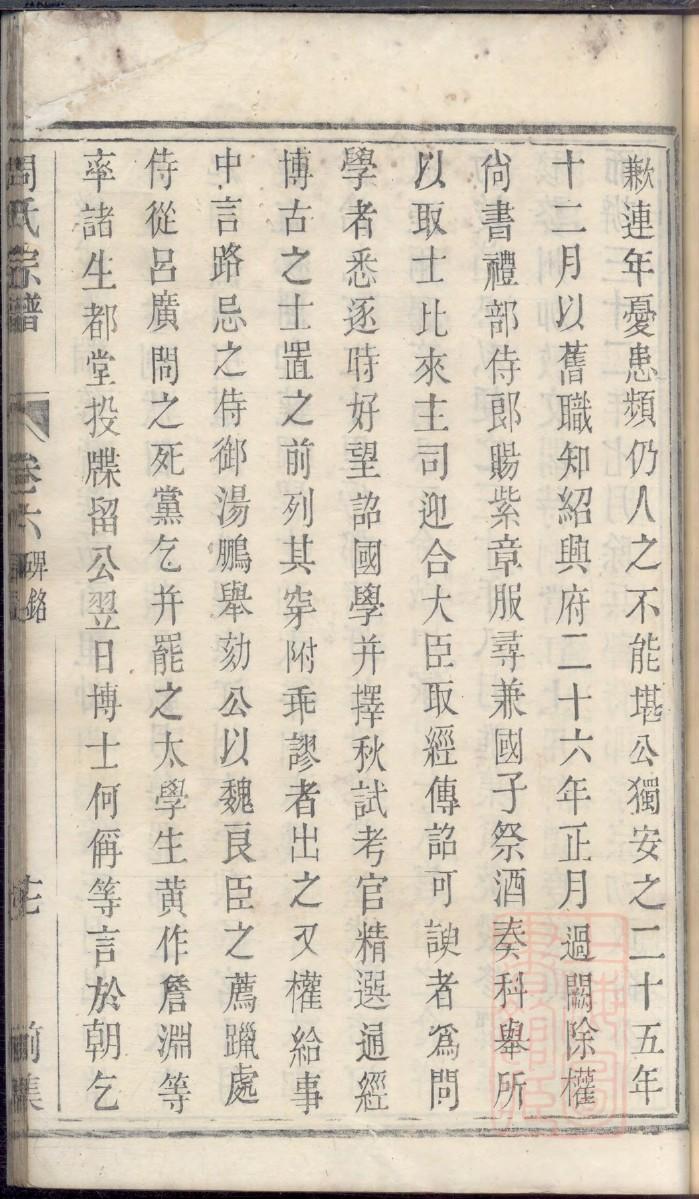 歉連年憂患頻仍人之不能堪公獨安之二十五年
十二月以舊職知紹興府二十六年正月過闕除權
尙書禮部侍郎賜紫章服尋兼國子祭酒奏科舉所
以取士比來主司迎合大臣取經傳詔可諛者爲問
學者悉逐時好望詔國學并擇秋試考官精選通經
博古之士置之前列其穿附乖謬者出之又權給事
中言路忌之侍御湯鵬舉劾公以魏良臣之薦躐處
侍從呂廣問之死黨乞并罷之太學生黄作詹淵等
率諸生都堂投牒留公翌日博士何俌等言於朝乞
周氏宗譜
卷六
碑銘
前集